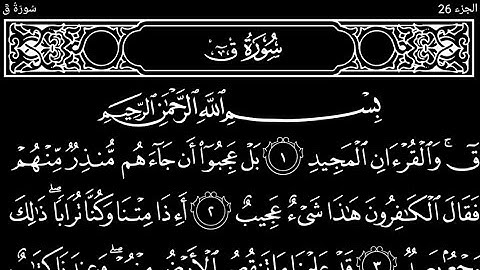 الجزء 26 سُورَةُ قٓ
سُورَةُ قٓ
بِسْمِ ٱللَّهِ ٱلرَّحْمَٰنِ ٱلرَّحِيمِ
قٓ ۚ وَٱلْقُرْءَانِ ٱلْمَجِيدِ ١ بَلْ عَجِبُوٓا۟ أَن جَآءَهُم مُّنذِرٌ مِّنْهُمْ
فَقَالَ ٱلْكَٰفِرُونَ هَٰذَا شَىْءٌ عَجِيبٌ ٢ أَءِذَا مِتْنَا وَكُنَّا تُرَابًا ۖ ذَٰلِكَ
رَجْعٌۢ بَعِيدٌ ٣ قَدْ عَلِمْنَا مَا تَنقُصُ ٱلْأَرْضُ مِنْهُمْ ۖ وَعِندَنَا كِتَٰبٌ